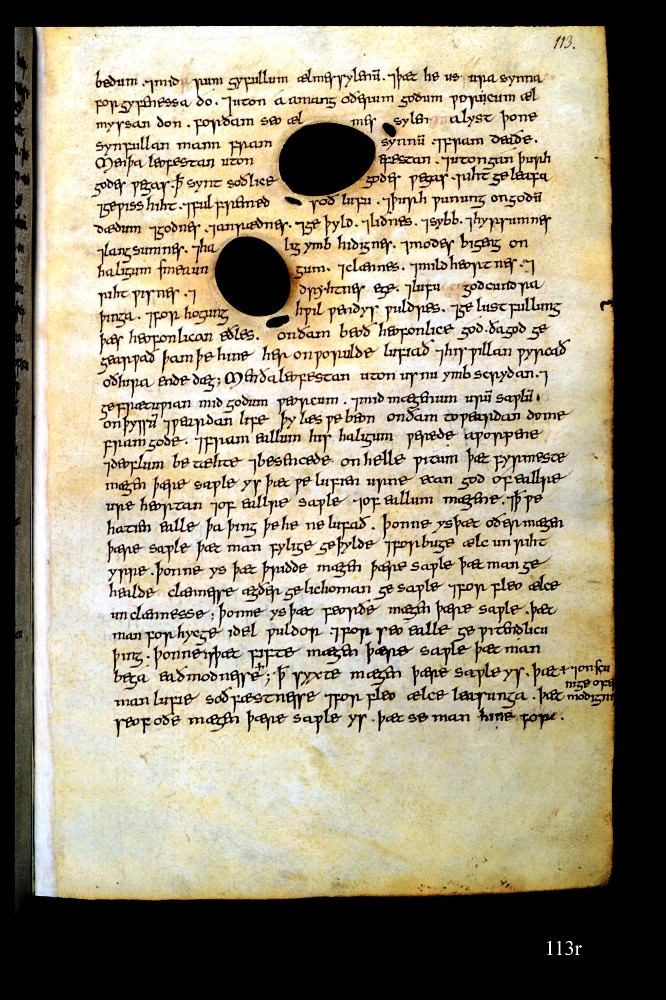 113.
bedum . ⁊ mid rum gyfullum ælmessylenū . ⁊ þæt he us ura synna
forgyfenessa do . ⁊ uton á amang oðerum godum weorcum æl
myssan don . forðam seo æl mes sylen alyst þone
synfullan mann fram synnū . ⁊ fram deaðe .
Men þa leofestan uton efestan . ⁊ utongan þurh
godes wegas . þ̄ synt soðlice godes wegas . riht geleafa
⁊ gewiss hiht . ⁊ ful fremed soð lufu . ⁊ þurh wunung on godū
dædum ⁊ godnes . ⁊ anrædnes . ⁊ geþyld . ⁊ liðnes . ⁊ sybb . ⁊ hyrsumnes
⁊ langsumnes . ⁊ ha lig ymb hidignes . ⁊ modes bigeng on
haligum smeaun gum . ⁊ clænnes . ⁊ mildheortnes . ⁊
riht wisnes . ⁊ dryhtnes ege . ⁊ lufu godcundra
þinga . ⁊ for hogung hwil wendys wuldres . ⁊ ge lustfullung
þæs heofonlican eðles . onðam beoð heofonlice god . ða god ge
gearwað þam þe hine her on worulde lufiað ⁊ his willan wyrcað
oð hira ende dæg ; Men ða leofestan uton us nu ymb scrydan . ⁊
gefrætwian mid godum weorcum . ⁊ mid mægenum urū sawlū .
on þyssū ⁊ weardan life þy læs we beon on ðam toweardan dome
fram gode . ⁊ fram eallum his haligum werede aworpene
⁊ deoflum betæhte ⁊ besencede on helle witum þæt fyrmeste
mægen þære saple ys þæt we lufien urne ecan god of ealre
ure heortan ⁊ of ealre saple ⁊ of eallum mægene . ⁊ þ̄ we
hatien ealle þa þing þe he ne lufað . þonne ys þæt oðer mægen
þære saple þæt man fylige geþylde ⁊ forbuge ælc un riht
yrre . þonne ys þæt þridde mægen þære saple þæt man ge
healde clænesse ægðer ge lichoman ge saple ⁊ for fleo ælce
unclænnesse ; þonne ys þæt feorðe mægen þære saple . þæt
man for hycge idel wuldor ⁊ for seo ealle ge witendlicu
þing . þonne is þæt fifte mægen þære saple þæt man
bega eadmodnesse ; þ̄ syxte mægen þære saple ys . þæt
man lufie soðfæstnesse ⁊ for fleo ælce leasunga . þæt
⁊ onscu
nige ofer
modignes
seofoðe mægen þære saple ys . þæt se man hine fore .
113r